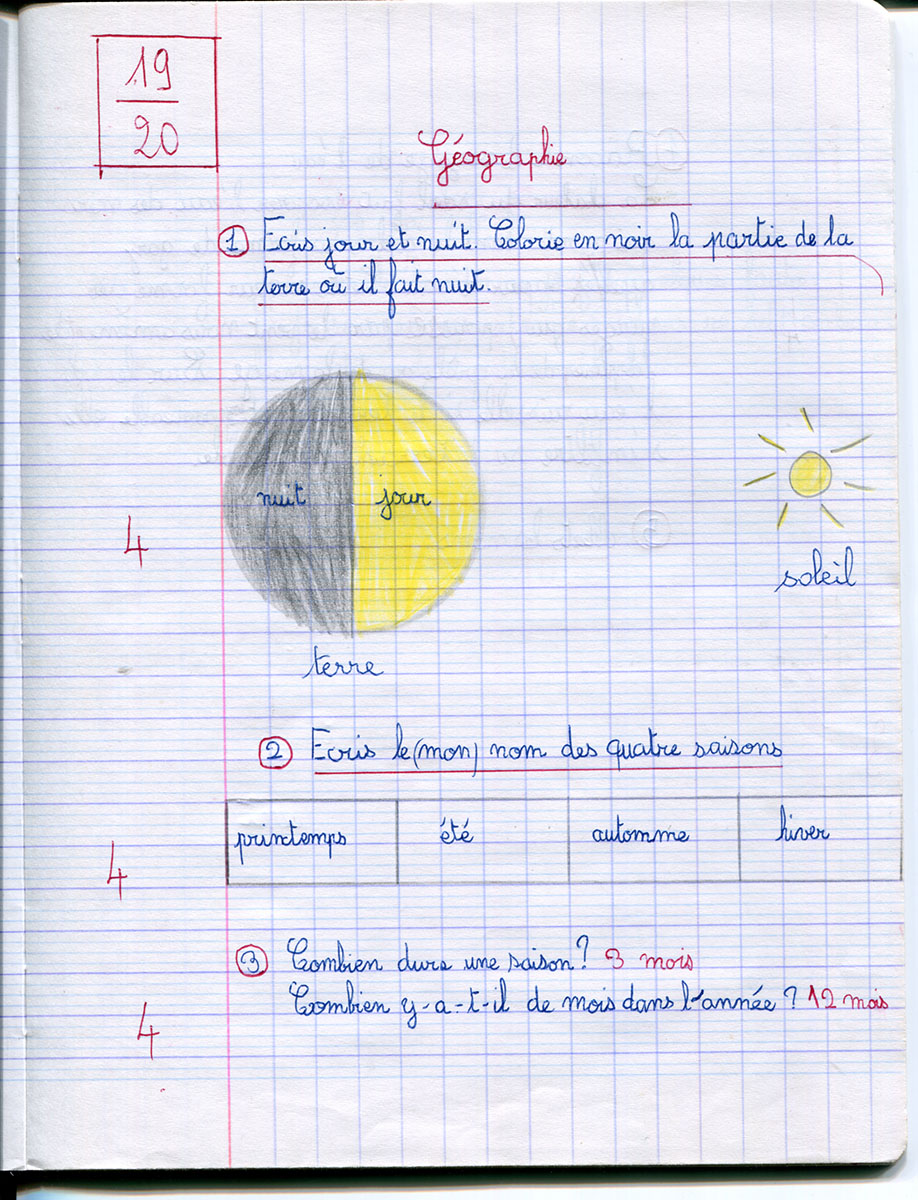 19
20
Géographie
1 Ecris jour et nuit. Colorie en noir la partie de la
terre où il fait nuit.
nuit jour
4
soleil
terre
2 Ecris le (mon) nom des quatre saisons
printemps été automme hiver
4
3 Combien dure une saison? 3 mois
Combien y-a-t-il de mois dans l'année? 12 mois
4